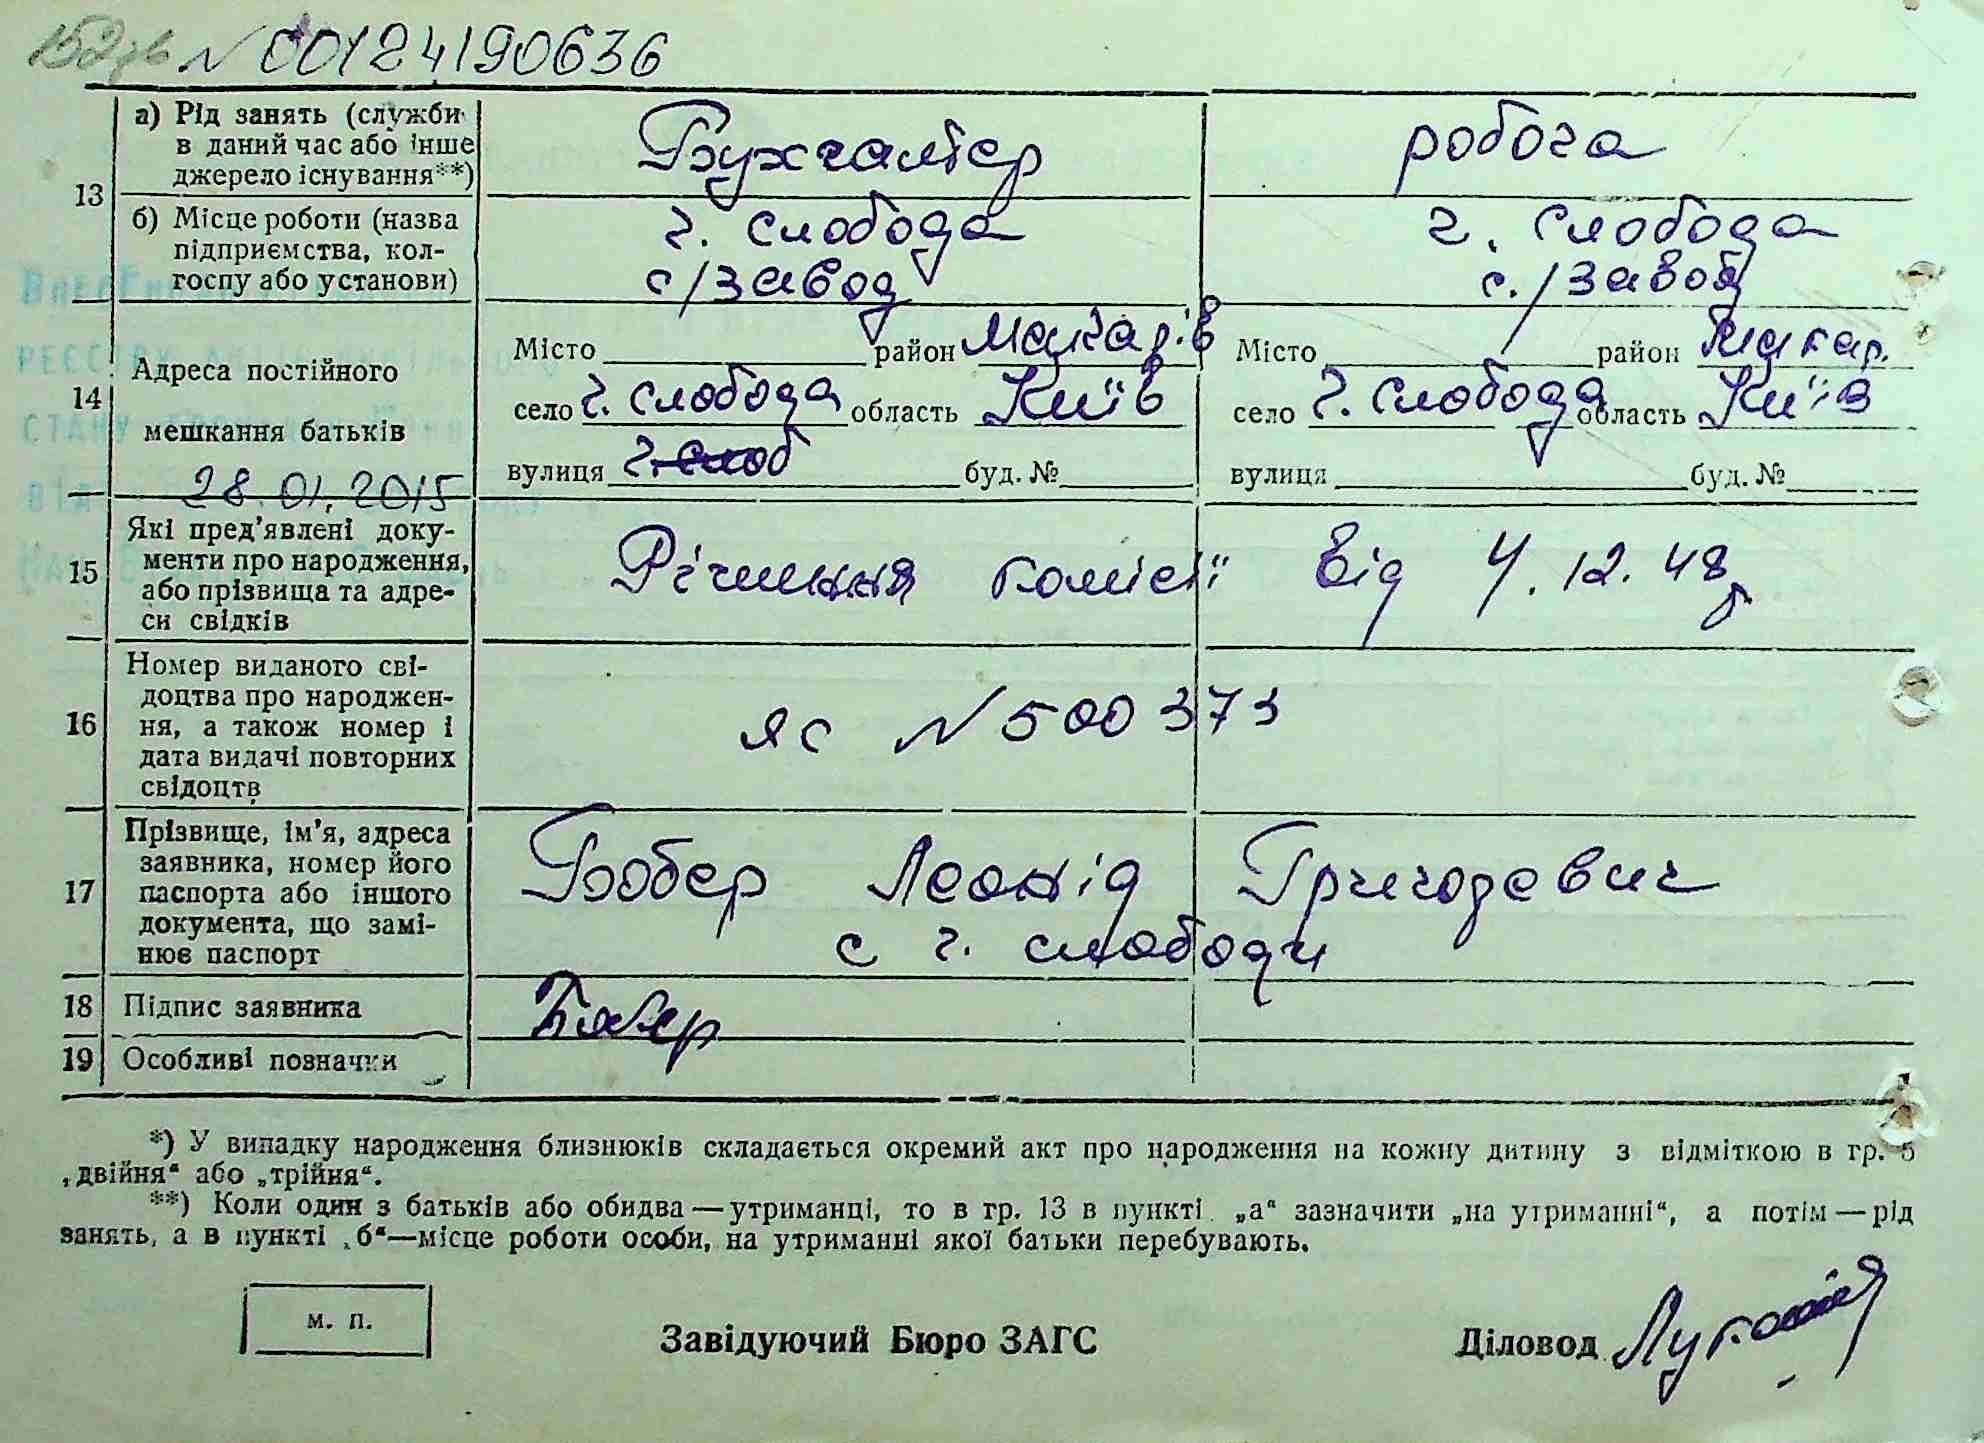 N 00124190636
13
а) Рід занять (служби в даний час або інше джерело існування**)
Бухгалтер
робоча
б) Місце роботи (назва підприємства, колгоспу або установи)
г. слобода
с/завод
г. слобода
с./завод
14
Адреса постійного мешкання батьків
Місто район Макарів
село г. слобода область Київ
вулиця г. слоб буд. №
Місто район Макар.
село г. слобода область Київ
вулиця буд. №
28.01.2015
15
Які пред'явлені документи про народження, або прізвища та адреси свідків
Рішення комісії від 4.12.48 р
16
Номер виданого свідоцтва про народження, а також номер і дата видачі повторних свідоцтв
яс N 500373
17
Прізвище, ім'я, адреса заявника, номер його паспорта або іншого документа, що замінює паспорт
Бобер Леонід Григорєвич
с г. слободи
18
Підпис заявника
Бобер
19
Особливі позначки
*) У випадку народження близнюків складається окремий акт про народження на кожну дитину з відміткою в гр. 5
„двійня“ або „трійня“.
**) Коли один з батьків або обидва — утриманці, то в гр. 13 в пункті „а“ зазначити „на утриманні“, а потім — рід
занять, а в пункті „б“—місце роботи особи, на утриманні якої батьки перебувають.
м. п.
Завідуючий Бюро ЗАГС
Діловод